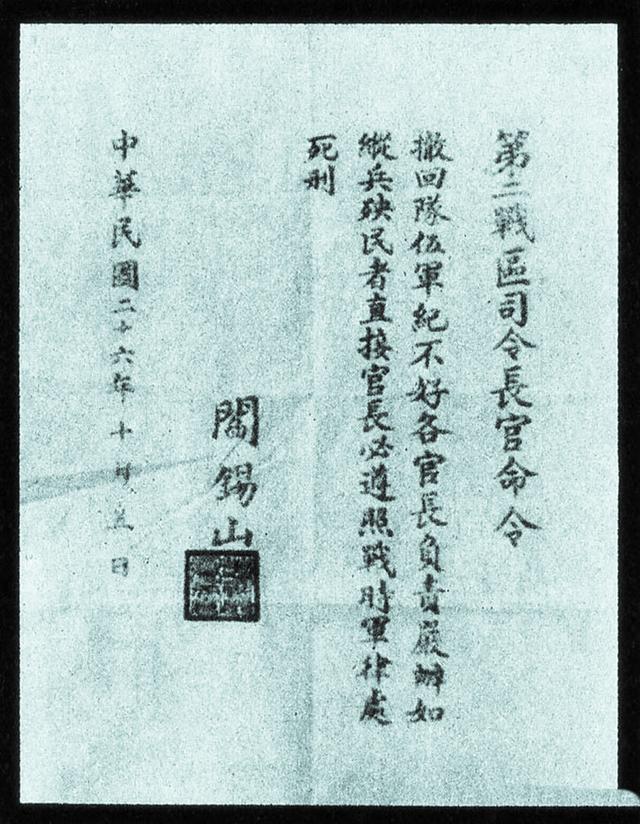 第二戰區司令長官命令
撤回隊伍軍紀不好各官長負責嚴辦如
縱兵殃民者直接官長必遵照戰時軍律處
死刑
閻錫山
中華民國二十六年十月三日